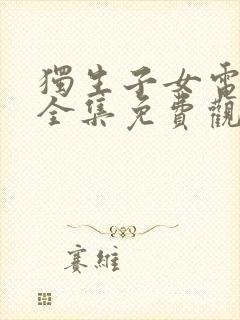 獨生子女電
全集免費觀
賽維